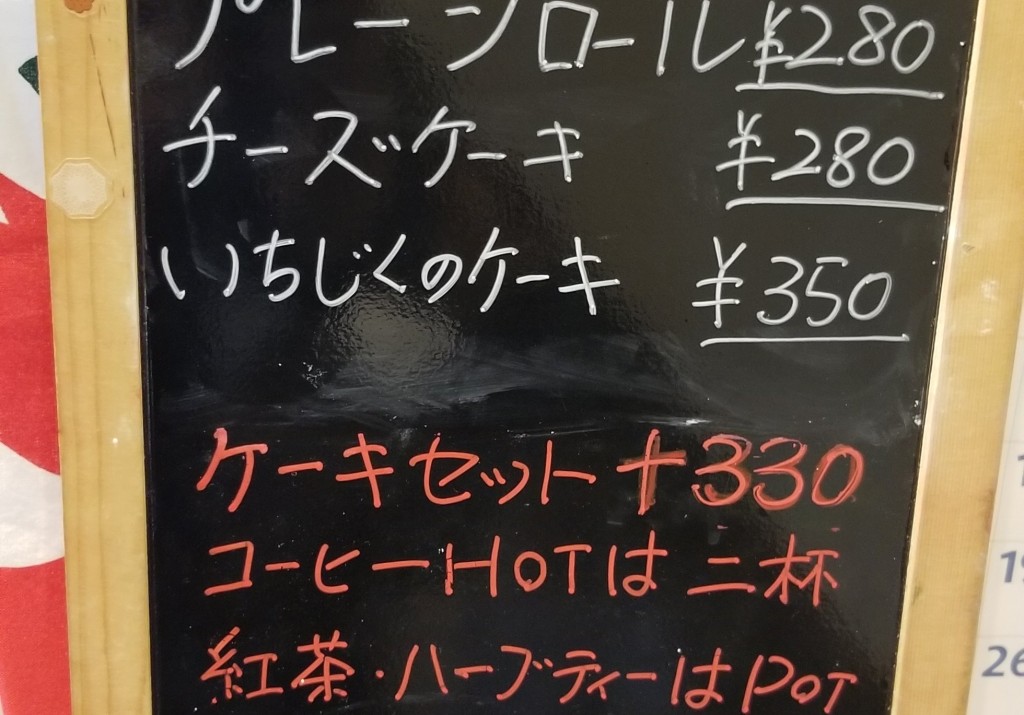 プレーンロール ¥280
チーズケーキ ¥280
いちじくのケーキ ¥350
ケーキセット +330
コーヒーHOTは二杯
紅茶・ハーブティーはPOT
19
26